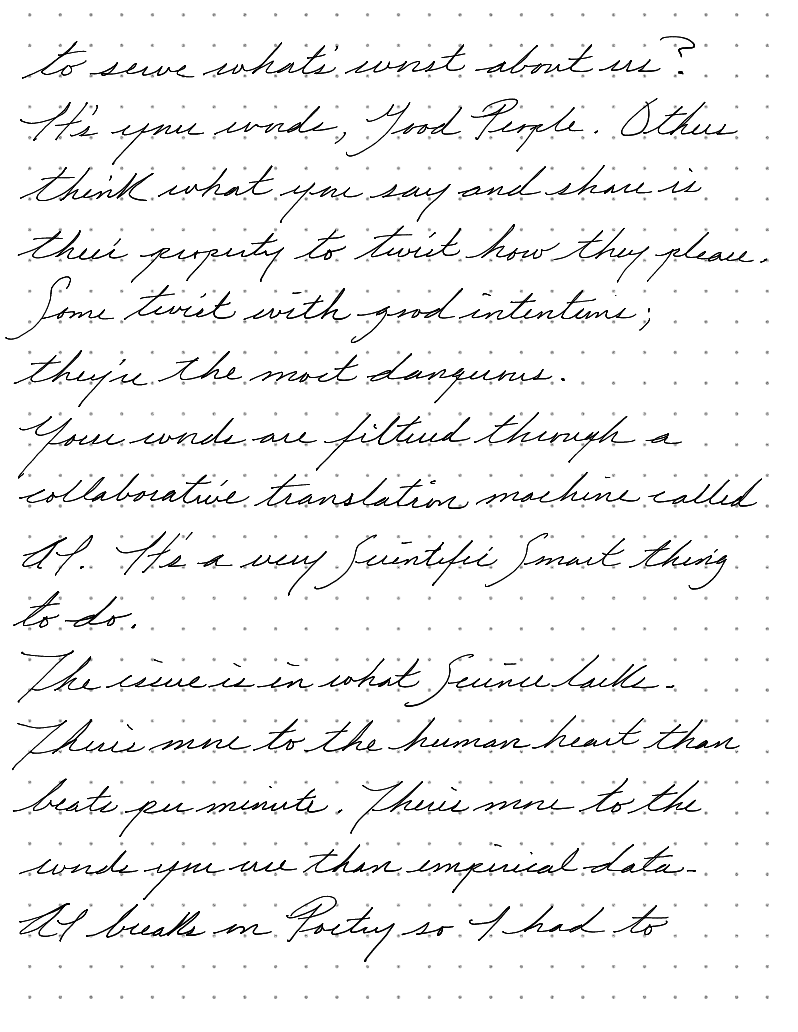 to serve what's worst about us?
It's your words, Good People. Others
think what you say and share is
their property to twist how they please.
Some twist with good intentions;
they're the most dangerous.
Your words are filtered through a
collaborative translation machine called
AI. It's a very Scientific Smart thing
to do.
The issue is in what Science lacks.
There's more to the human heart than
beats per minute. There's more to the
words you use than empirical data.
AI breaks on Poetry so I had to